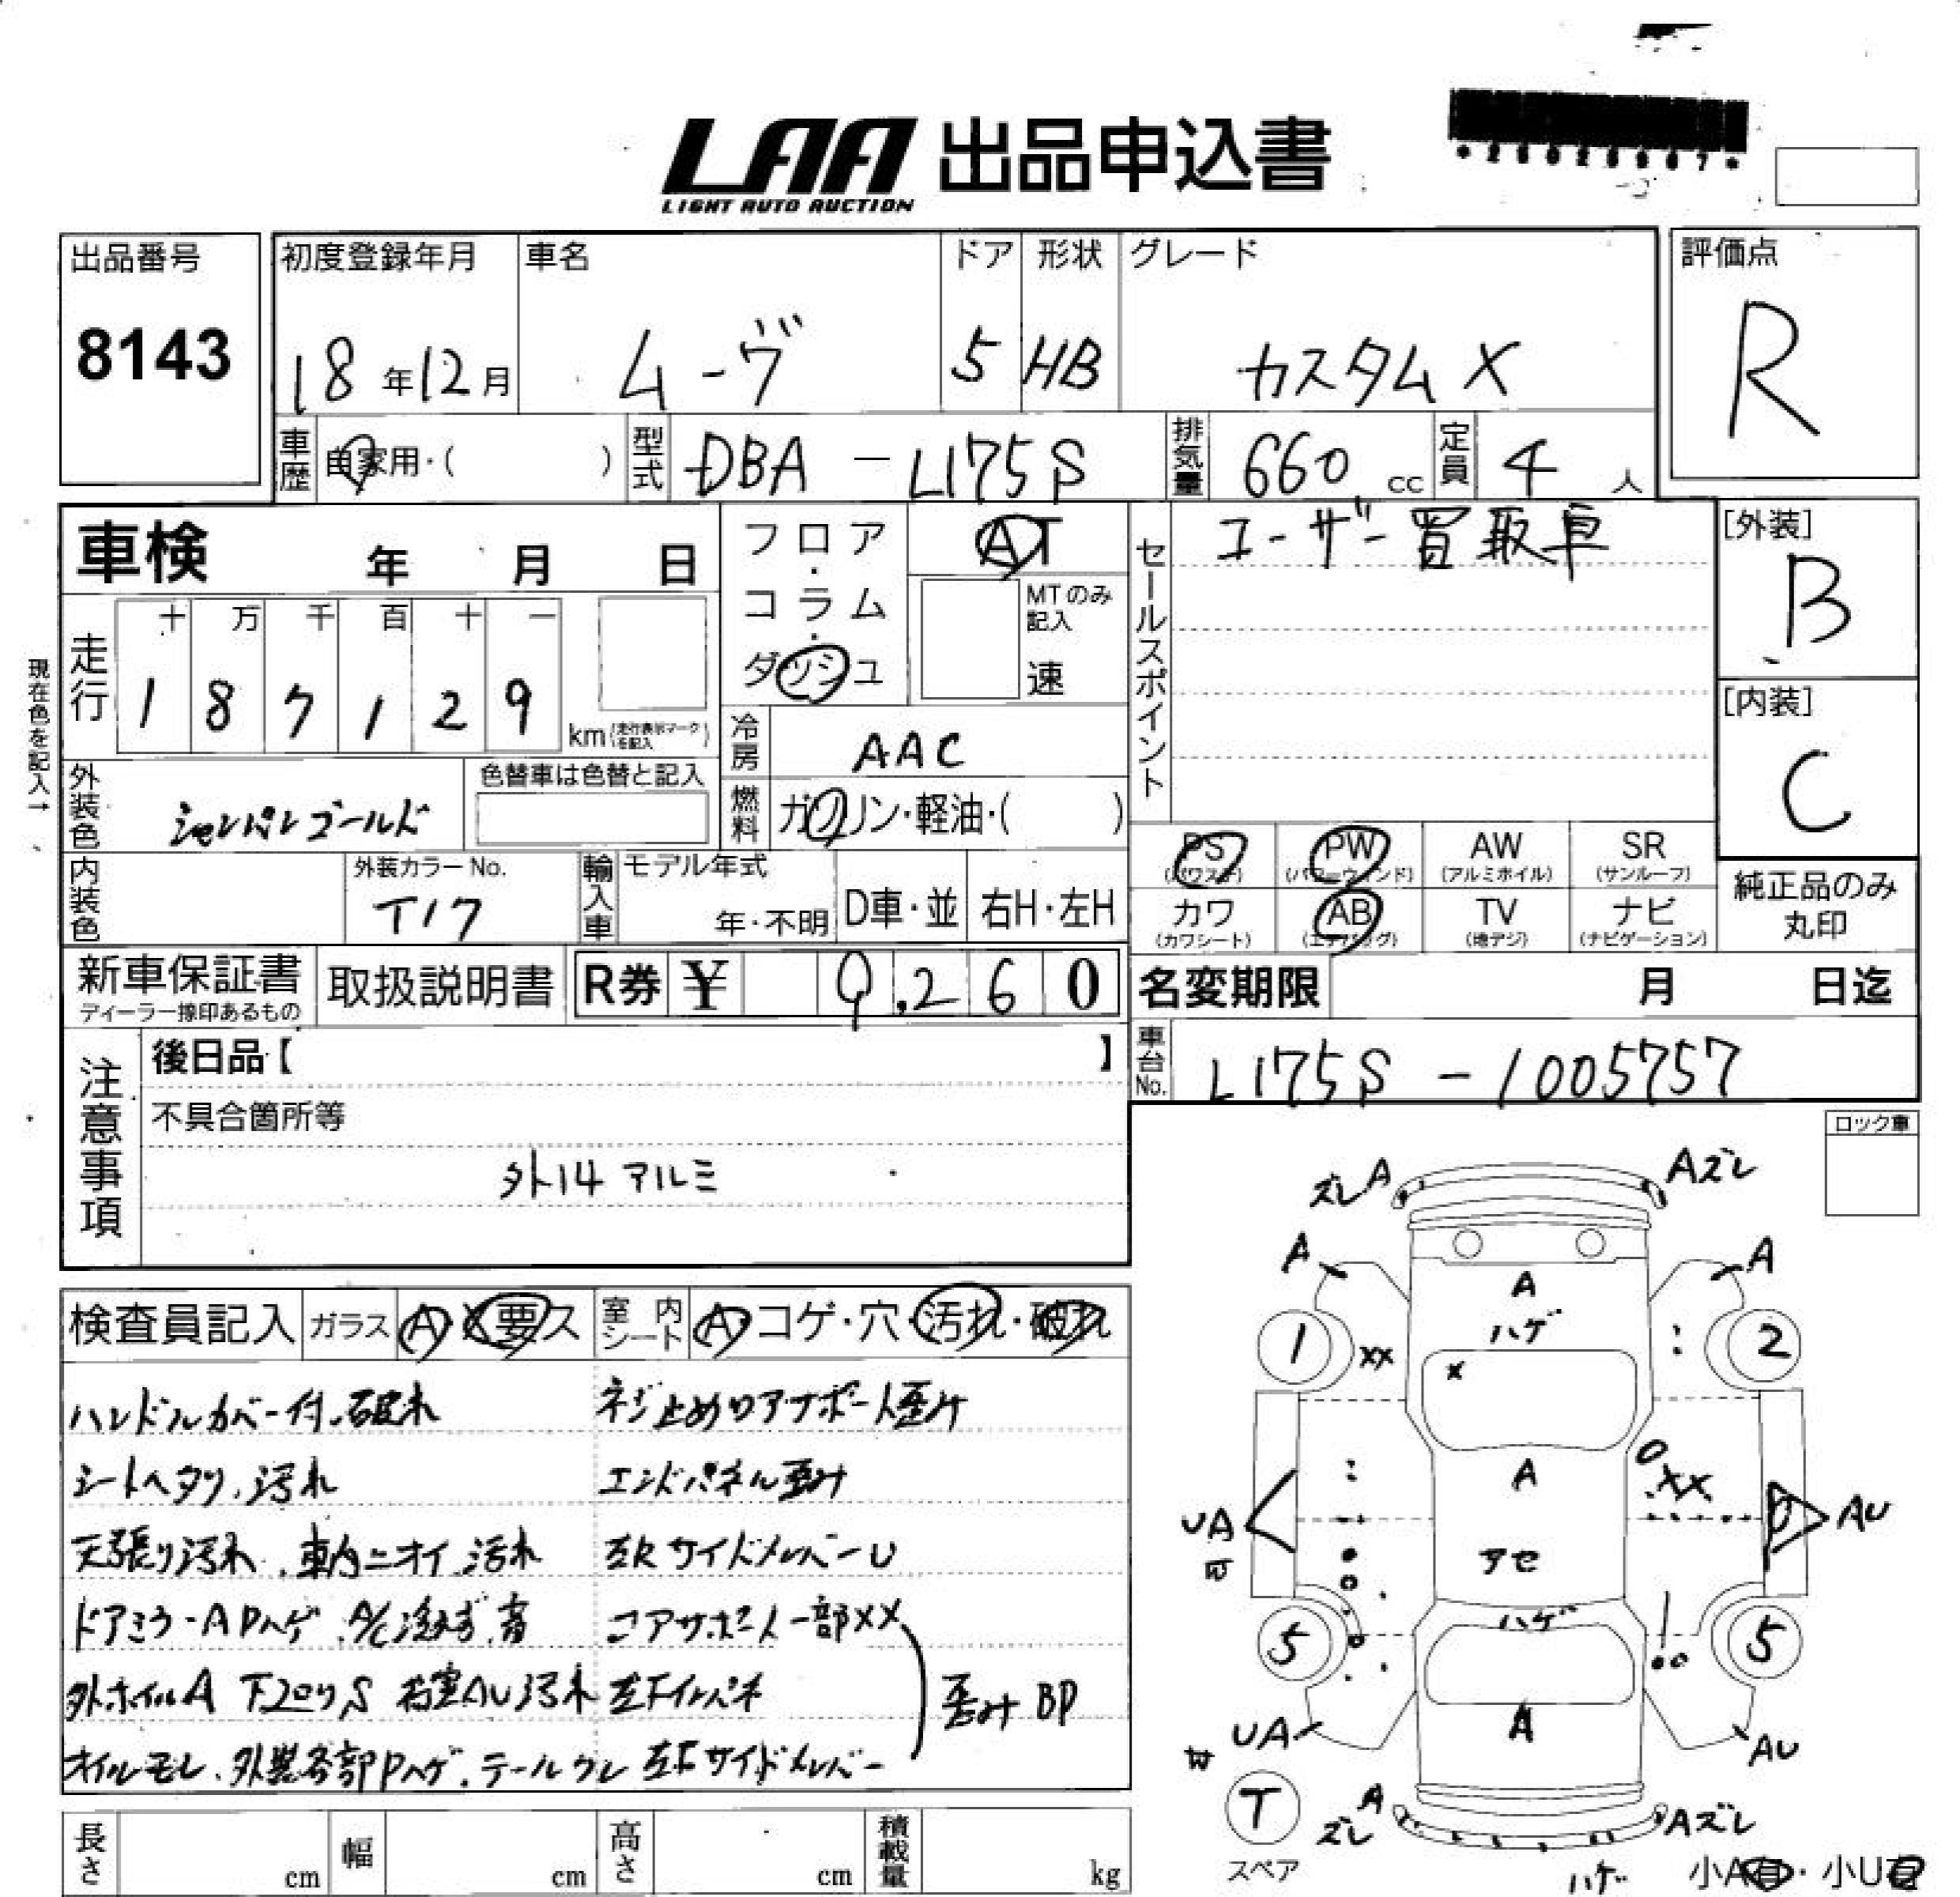 LAA 出品申込書
LIGHT AUTO AUCTION
出品番号
8143
初度登録年月
18年12月
車名
ムーヴ
ドア
5
形状
HB
グレード
カスタムX
評価点
R
車歴
自家用・( )
型式
DBA-L175S
排気量
660 cc
定員
4 人
車検 年 月 日
フロア・コラム・ダッシュ
AT
MTのみ記入
速
セールスポイント
ユーザー買取車
[外装]
B
[内装]
C
現在色を記入→
走行
十 万 千 百 十 一
1 8 7 1 2 9
km(走行表示マークを記入)
冷房
AAC
外装色
シャンパンゴールド
色替車は色替と記入
燃料
ガソリン・軽油・( )
内装色
外装カラーNo.
T17
輸入車
モデル年式
年・不明
D車・並
右H・左H
PS
(パワステ)
PW
(パワーウィンド)
AW
(アルミホイル)
SR
(サンルーフ)
カワ
(カワシート)
AB
(エアバッグ)
TV
(地デジ)
ナビ
(ナビゲーション)
純正品のみ
丸印
新車保証書
ディーラー捺印あるもの
取扱説明書
R券 ¥ 9,260
名変期限 月 日迄
注意事項
後日品【 】
不具合箇所等
外14アルミ
車台No.
L175S-1005757
ロック車
検査員記入 ガラス A X 要ス 室内シート A コゲ・穴・汚れ・破れ
ハンドルカバー付、破れ
シートヘタリ、汚れ
天張り汚れ、車内ニオイ、汚れ
ドアミラーA Pハゲ、A/C 音
外ホイルA 下回りS AU汚れ
オイルモレ、外装各部Pハゲ、テールワレ
ネジ止めロアサポート歪み
エンドパネル歪み
左Rサイドメンバー U
コアサポート一部XX
左Fインパネ
左Fサイドメンバー
歪み BP
ズレA Aズレ
A A
A
ハゲ
1 XX 2
X
A
XX
UA AU
アセ
ハゲ
5 5
UA A AU
T
スペア
ズレ A Aズレ
ハゲ
小A有・小U有
長さ cm
幅 cm
高さ cm
積載量 kg